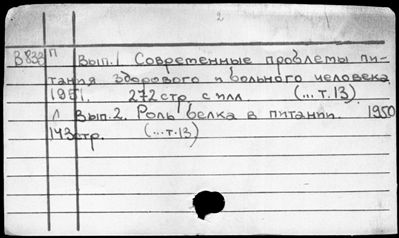 2
В 838 П Вып. 1 Современные проблемы пи-
тания здорового и больного человека
1951. 272 стр. с илл. (...т.13)
Л Вып. 2. Роль белка в питании. 1950
143 стр. (...т.13)